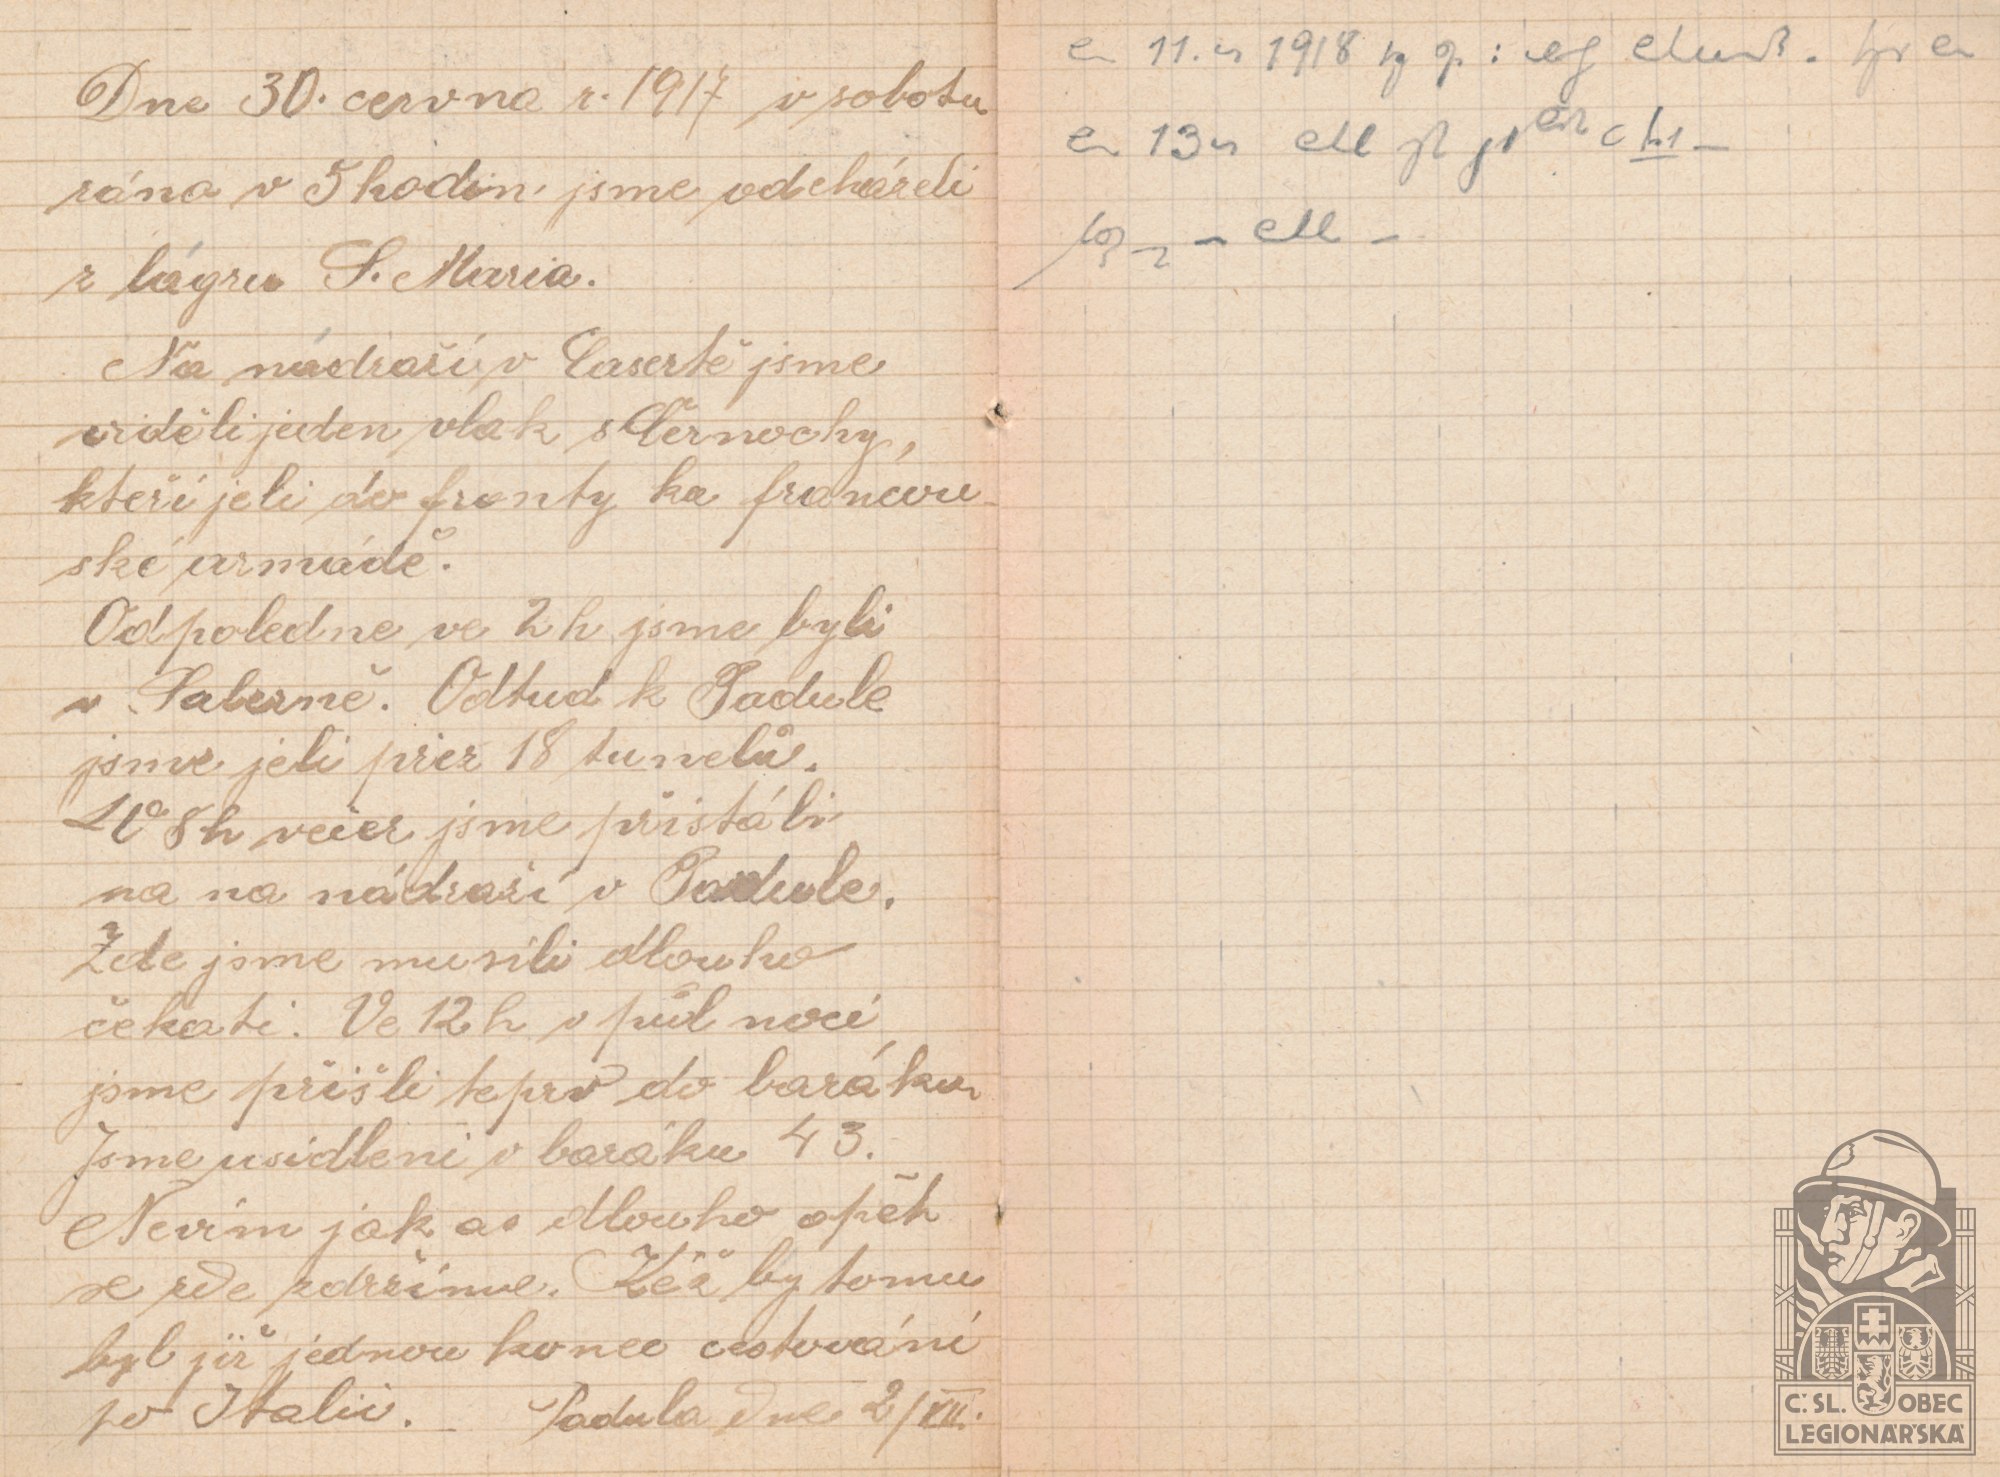 Dne 30. cervna r. 1917 v sobotu
rána v 5 hodin. jsme odcházeli
z lágru S. Maria.
Na nádraží v Casertě jsme
viděli jeden vlak s Černochy,
kteří jeli do fronty ka francou-
ské armádě.
Odpoledne ve 2 h jsme byli
v Salerně. Odtud k Padule
jsme jeli přez 18 tunelů.
V 8 h večer jsme přistáli
na na nádraží v Padule.
Zde jsme musili dlouho
čekati. Ve 12 h v půl noci
jsme přišli teprv do baráku
Jsme usídleni v baráku 43.
Nevím jak as dlouho opět
se zde zdržíme. Kéž by tomu
byl již jednou konec cestování
po Italii. Padula dne 2/VII.
11. 1918
13
Č. SL. OBEC
LEGIONÁŘSKÁ